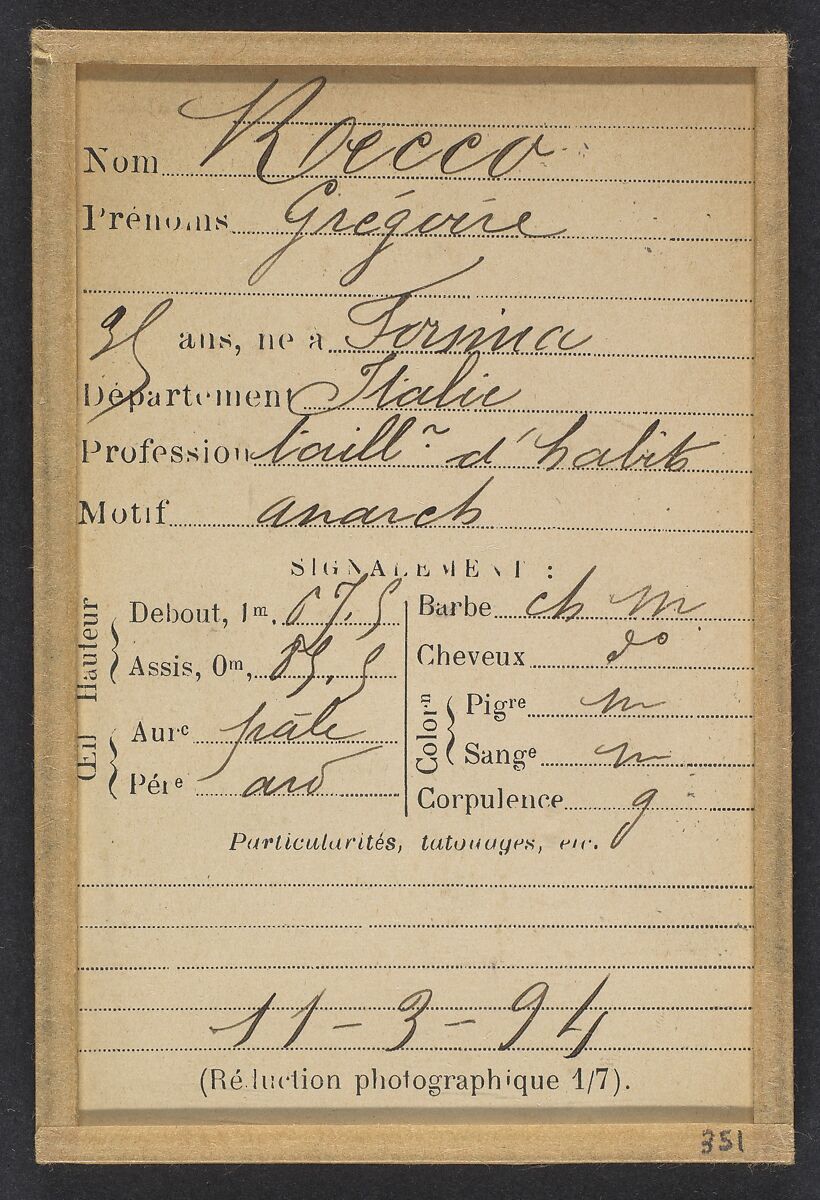 Nom Rocco
Prénoms Grégoire
35 ans, né à Formia
Département Italie
Profession taillr d'habits
Motif anarch
SIGNALEMENT :
Hauteur
Debout, 1m, 67,5
Assis, 0m, 89,5
Œil
Aure pâle
Pére ard
Barbe ch m
Cheveux do
Colorn
Pigre m
Sange m
Corpulence g
Particularités, tatouages, etc.
11-3-94
(Réduction photographique 1/7).
351